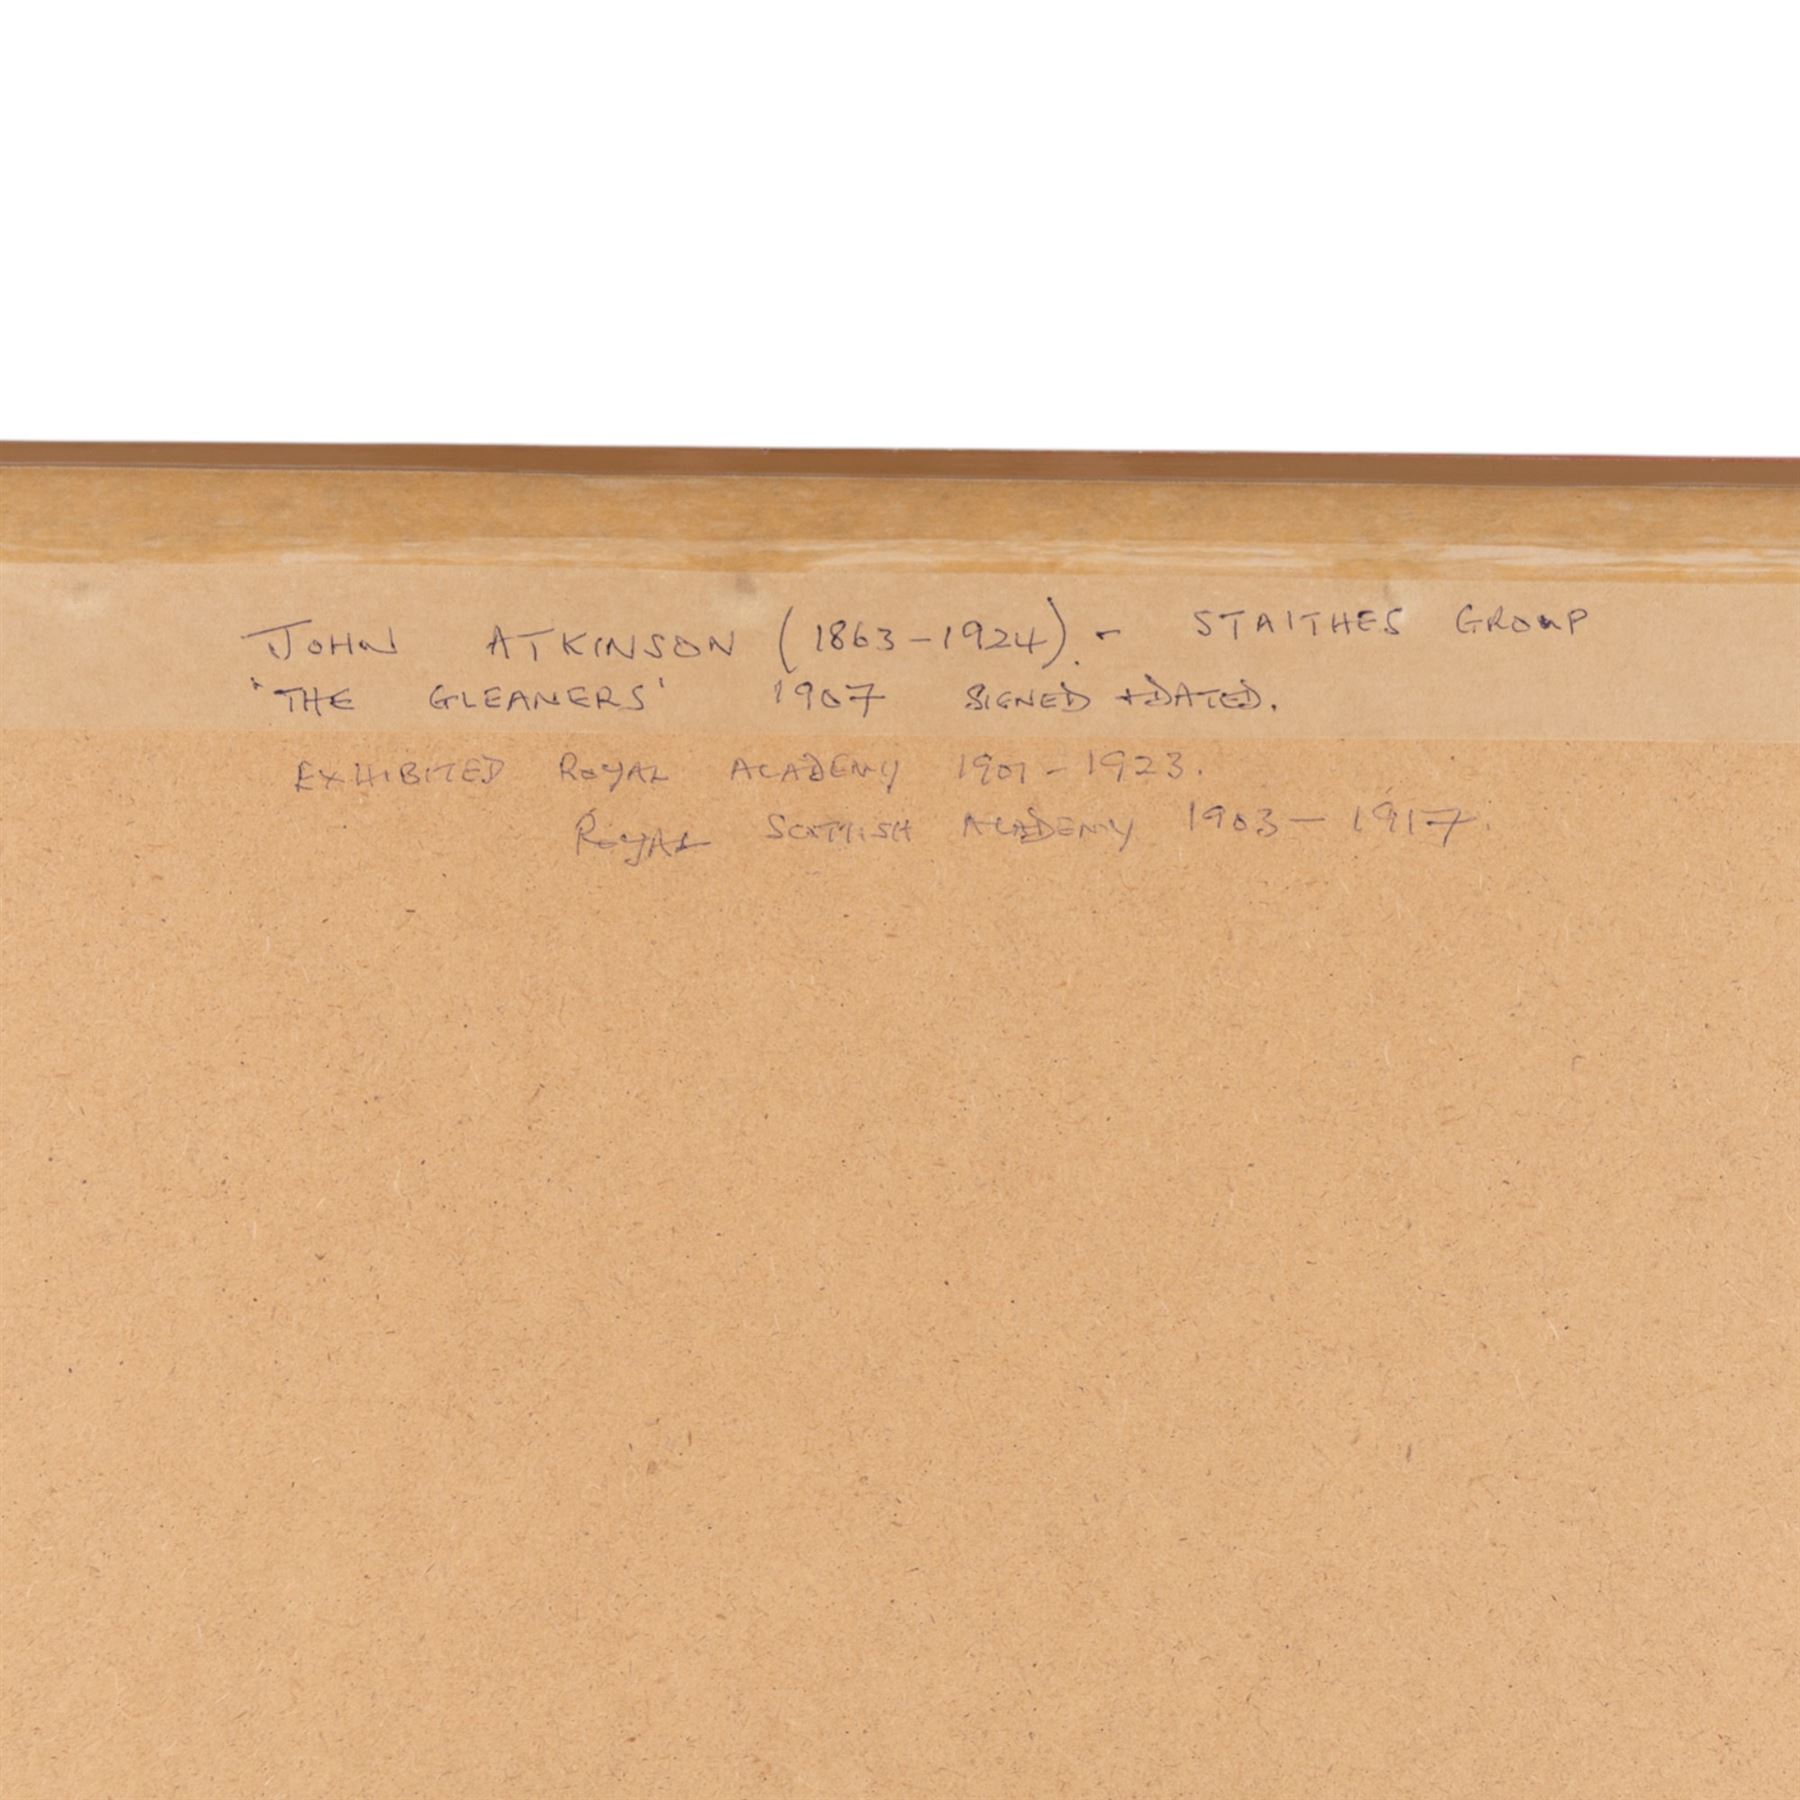 JOHN ATKINSON (1863-1924). - STAITHES GROUP
'THE GLEANERS' 1907 SIGNED + DATED.
EXHIBITED ROYAL ACADEMY 1901-1923.
ROYAL SCOTTISH ACADEMY 1903-1917.